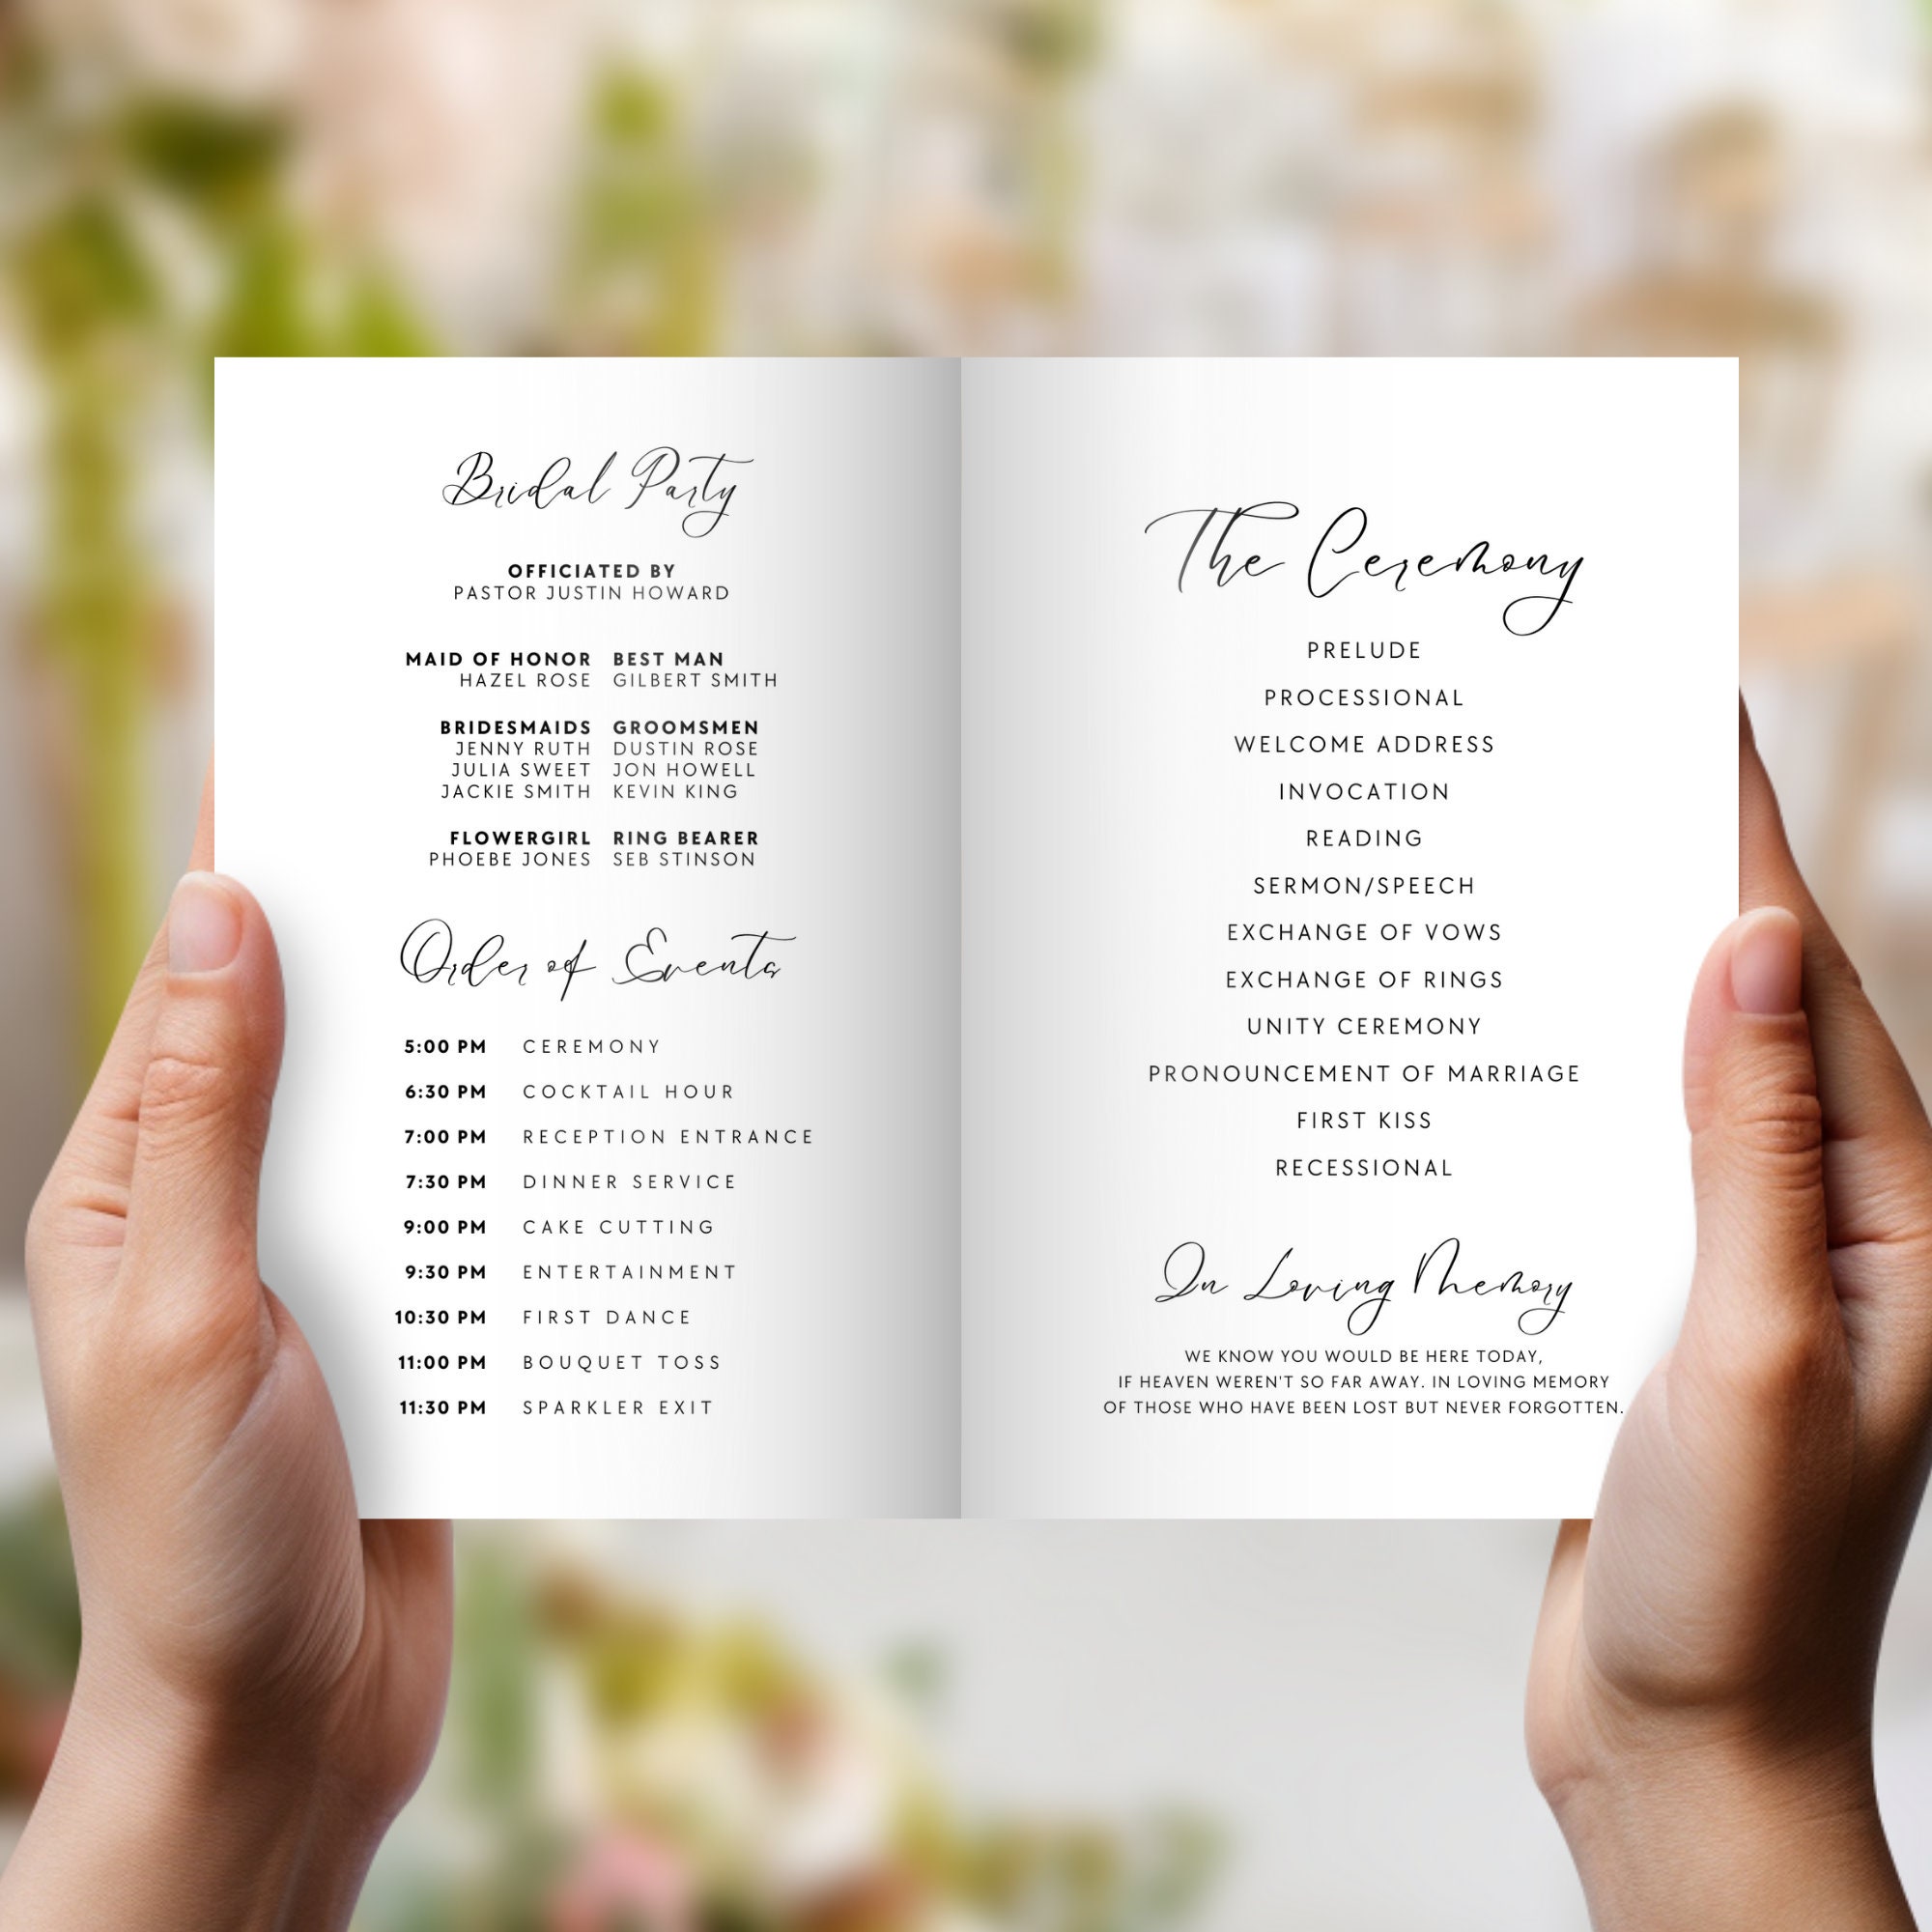 Bridal Party
OFFICIATED BY
PASTOR JUSTIN HOWARD
MAID OF HONOR BEST MAN
HAZEL ROSE GILBERT SMITH
BRIDESMAIDS GROOMSMEN
JENNY RUTH DUSTIN ROSE
JULIA SWEET JON HOWELL
JACKIE SMITH KEVIN KING
FLOWERGIRL RING BEARER
PHOEBE JONES SEB STINSON
Order of Events
5:00 PM CEREMONY
6:30 PM COCKTAIL HOUR
7:00 PM RECEPTION ENTRANCE
7:30 PM DINNER SERVICE
9:00 PM CAKE CUTTING
9:30 PM ENTERTAINMENT
10:30 PM FIRST DANCE
11:00 PM BOUQUET TOSS
11:30 PM SPARKLER EXIT
The Ceremony
PRELUDE
PROCESSIONAL
WELCOME ADDRESS
INVOCATION
READING
SERMON/SPEECH
EXCHANGE OF VOWS
EXCHANGE OF RINGS
UNITY CEREMONY
PRONOUNCEMENT OF MARRIAGE
FIRST KISS
RECESSIONAL
In Loving Memory
WE KNOW YOU WOULD BE HERE TODAY,
IF HEAVEN WEREN'T SO FAR AWAY. IN LOVING MEMORY
OF THOSE WHO HAVE BEEN LOST BUT NEVER FORGOTTEN.